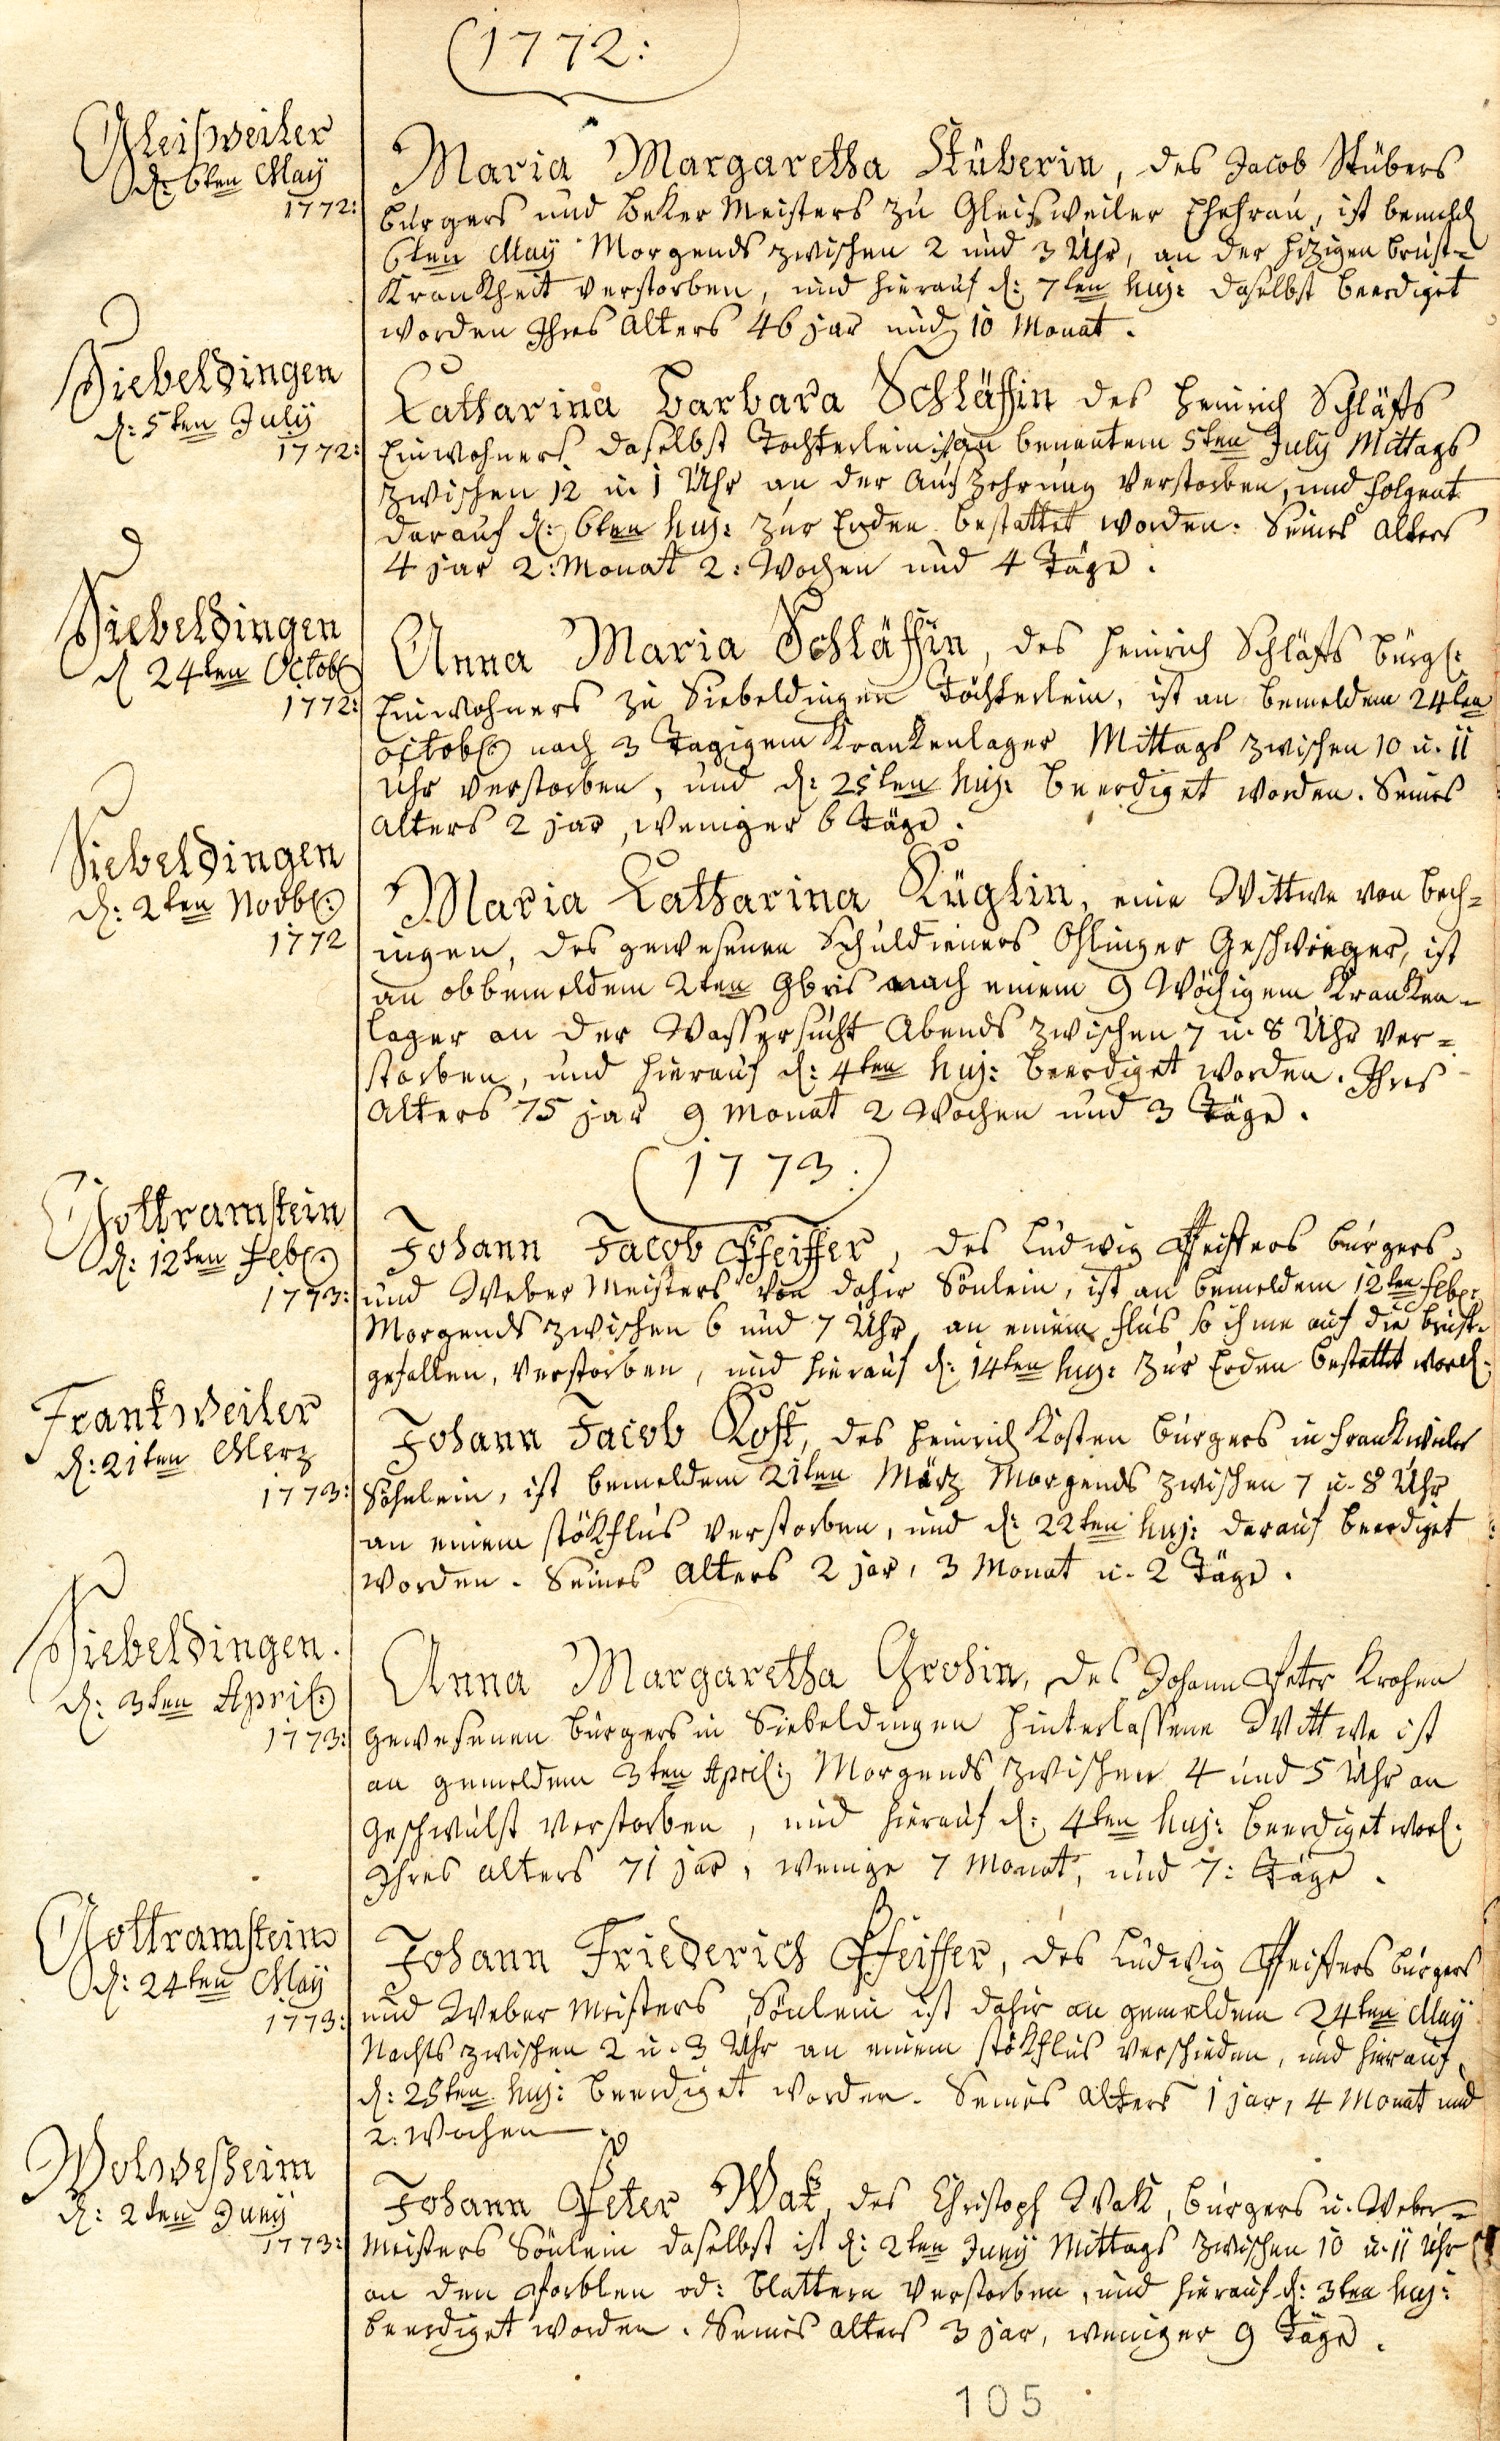 1772:
Gleisweiler
d: 6ten May
1772:
Maria Margaretha Stüberin, des Jacob Stübers
burgers und Beker Meisters zu Gleisweiler Ehefrau, ist bemeld
6ten May Morgends zwischen 2 und 3 Uhr, an der hizigen brust-
Krankheit verstorben, und hierauf d: 7ten huj: daselbst beerdiget
worden Ihres Alters 46 jar und 10 Monat.
Siebeldingen
d: 5ten July
1772:
Catharina Barbara Schläffin des Heinrich Schläffs
Einwohners daselbst Tochterlein ist an benantem 5ten July Mittags
zwischen 12 u. 1 Uhr an der Auszehrung verstorben, und folgent
darauf d: 6ten huj: zur Erden bestattet worden. Seines Alters
4 jar 2: Monat 2: Wochen und 4 Täge.
Siebeldingen
d 24ten Octobr
1772:
Anna Maria Schläffin, des Heinrich Schläffs bürgl:
Einwohners zu Siebeldingen Töchterlein, ist an bemeldem 24ten
octobr: nach 3 Tagigem Krankenlager Mittags zwischen 10 u. 11
Uhr verstorben, und d: 25ten huj: beerdiget worden. Seines
Alters 2 jar, weniger 6 Täge.
Siebeldingen
d: 2ten Novbr:
1772
Maria Catharina Küglin, eine Wittwe von Bech-
ingen, des gewesenen Schuldieners Ohlinger Geschwieger, ist
an obbemeldem 2ten 9bris nach einem 9 Wöchigem Kranken-
lager an der Wassersucht Abends zwischen 7 u. 8 Uhr ver-
storben, und hierauf d: 4ten huj: beerdiget worden. Ihres
Alters 75 jar 9 Monat 2 Wochen und 3 Täge.
1773:
Gottramstein
d: 12ten Febr:
1773:
Johann Jacob Pfeiffer, des Ludwig Pfeiffers burgers
und Weber Meisters von dahir Sönlein, ist an bemeldem 12ten Febr:
Morgends zwischen 6 und 7 Uhr, an einem flus so ihme auf die brust
gefallen, verstorben, und hierauf d: 14ten huj: zur Erden bestattet word:
Frankweiler
d: 21ten Merz
1773:
Johann Jacob Kost, des Heinrich Kosten burgers in Frankweiler
Söhnlein, ist bemeldem 21ten März Morgends zwischen 7 u. 8 Uhr
an einem stökflus verstorben, und d: 22ten huj: darauf beerdiget
worden. Seines Alters 2 jar, 3 Monat u. 2 Täge.
Siebeldingen.
d: 3ten April:
1773:
Anna Margaretha Grohin, des Johann Peter Krohen
gewesenen burgers in Siebeldingen hinterlassene Wittwe ist
an gemeldem 3ten April: Morgends zwischen 4 und 5 Uhr an
Geschwulst verstorben, und hierauf d: 4ten huj: beerdiget word.
Ihres alters 71 jar, wenige 7 Monat, und 7: Täge.
Gottramstein
d: 24ten May
1773:
Johann Friederich Pfeiffer, des Ludwig Pfeiffers burgers
und Weber Meisters Sönlein ist dahir an gemeldem 24ten May
Nachts zwischen 2 u. 3 Uhr an einem stökflus verschieden, und hierauf
d: 25ten huj: beerdiget worden. Seines Alters 1 jar, 4 Monat und
2: Wochen
Wolmesheim
d: 2ten Juny
1773:
Johann Peter Wak, des Christoph Wak, burgers u. Weber-
meisters Sönlein daselbst ist d: 2ten Juny Mittags zwischen 10 u. 11 Uhr
an den Porblen od: blattern verstorben, und hierauf d: 3ten huj:
beerdiget worden. Seines alters 3 jar, weniger 9 Täge.
105